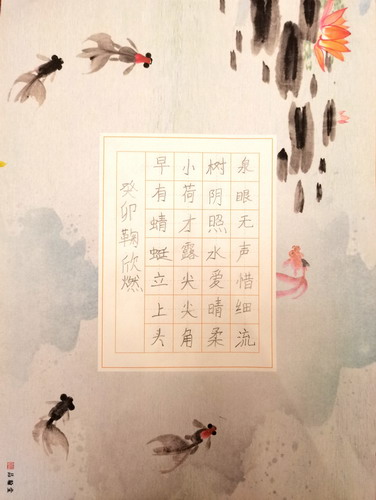 泉眼无声惜细流
树阴照水爱晴柔
小荷才露尖尖角
早有蜻蜓立上头
癸卯鞠欣燃